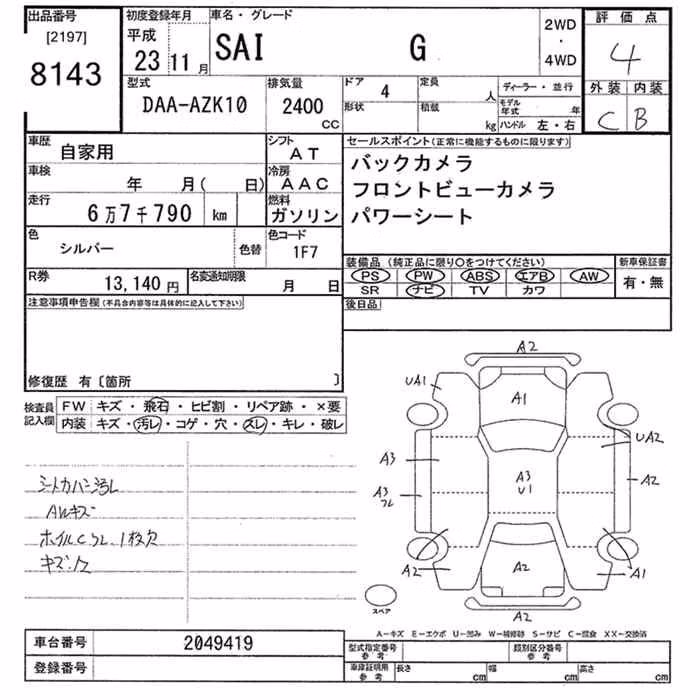 出品番号
[2197]
8143
初度登録年月
平成
23 11月
車名・グレード
SAI G
2WD
・
4WD
評価点
4
外装 内装
C B
型式
DAA-AZK10
排気量
2400
cc
ドア
4
形状
定員
人
積載
kg
ディーラー・並行
モデル年式 年
ハンドル 左・右
車歴
自家用
シフト
AT
車検
年 月( 日)
冷房
AAC
走行
6万7千790 km
燃料
ガソリン
色
シルバー
色替
色コード
1F7
R券
13,140円
名変通知期限
月 日
セールスポイント(正常に機能するものに限ります)
バックカメラ
フロントビューカメラ
パワーシート
装備品(純正品に限り〇をつけてください)
PS PW ABS エアB AW
SR ナビ TV カワ
新車保証書
有・無
後日品
注意事項申告欄(不具合内容等は具体的に記入して下さい)
修復歴 有〔箇所 〕
検査員
記入欄
FW キズ・飛石・ヒビ割・リペア跡・×要
内装 キズ・汚レ・コゲ・穴・スレ・キレ・破レ
シートカバー汚レ
AWキズ
A2
UA1
A1
UA2
A3
A3
U1
A2
A3
フレ
A2
A2
A1
A2
スペア
A―キズ E―エクボ U―凹み W―補修跡 S―サビ C―腐食 XX―交換済
車台番号
2049419
登録番号
型式指定番号
参考
類別区分番号
参考
車庫証明用
参考
長さ cm
幅 cm
高さ cm